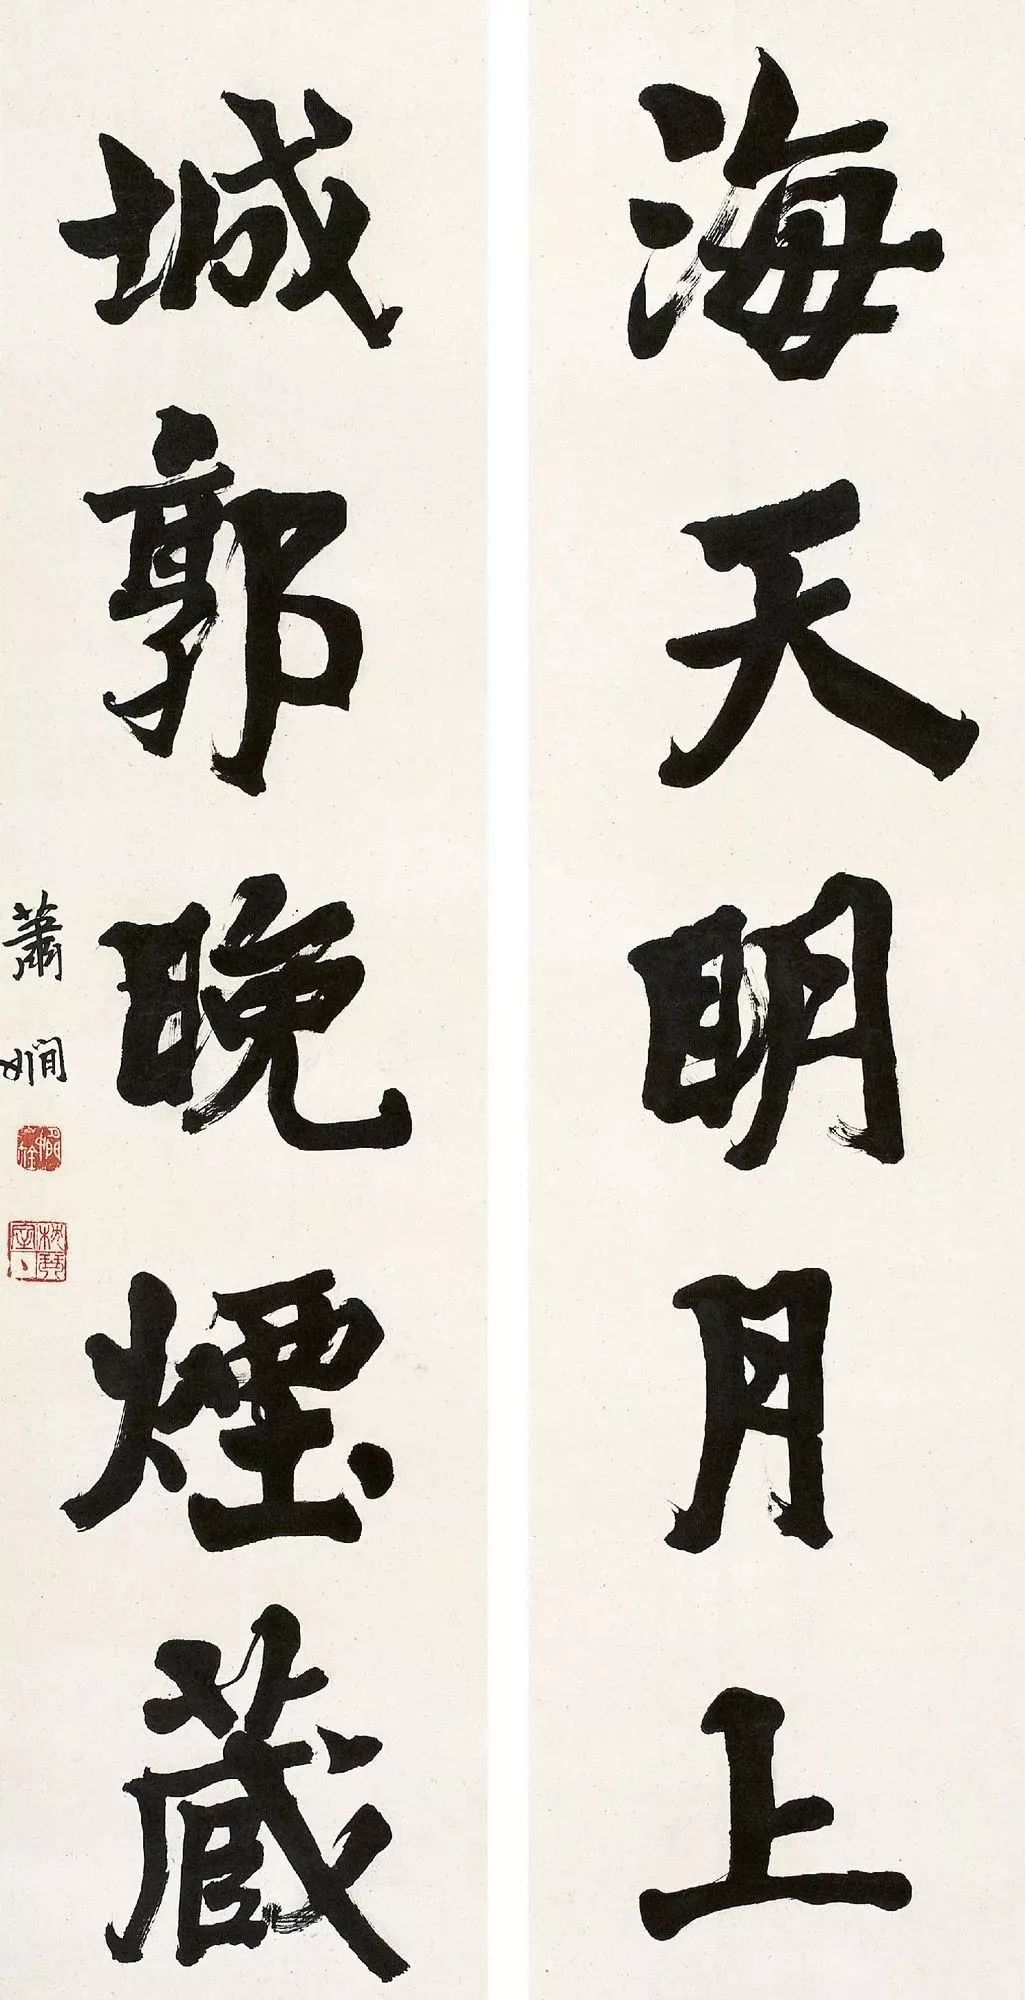 海天明月上
城郭晚煙藏
蕭嫺